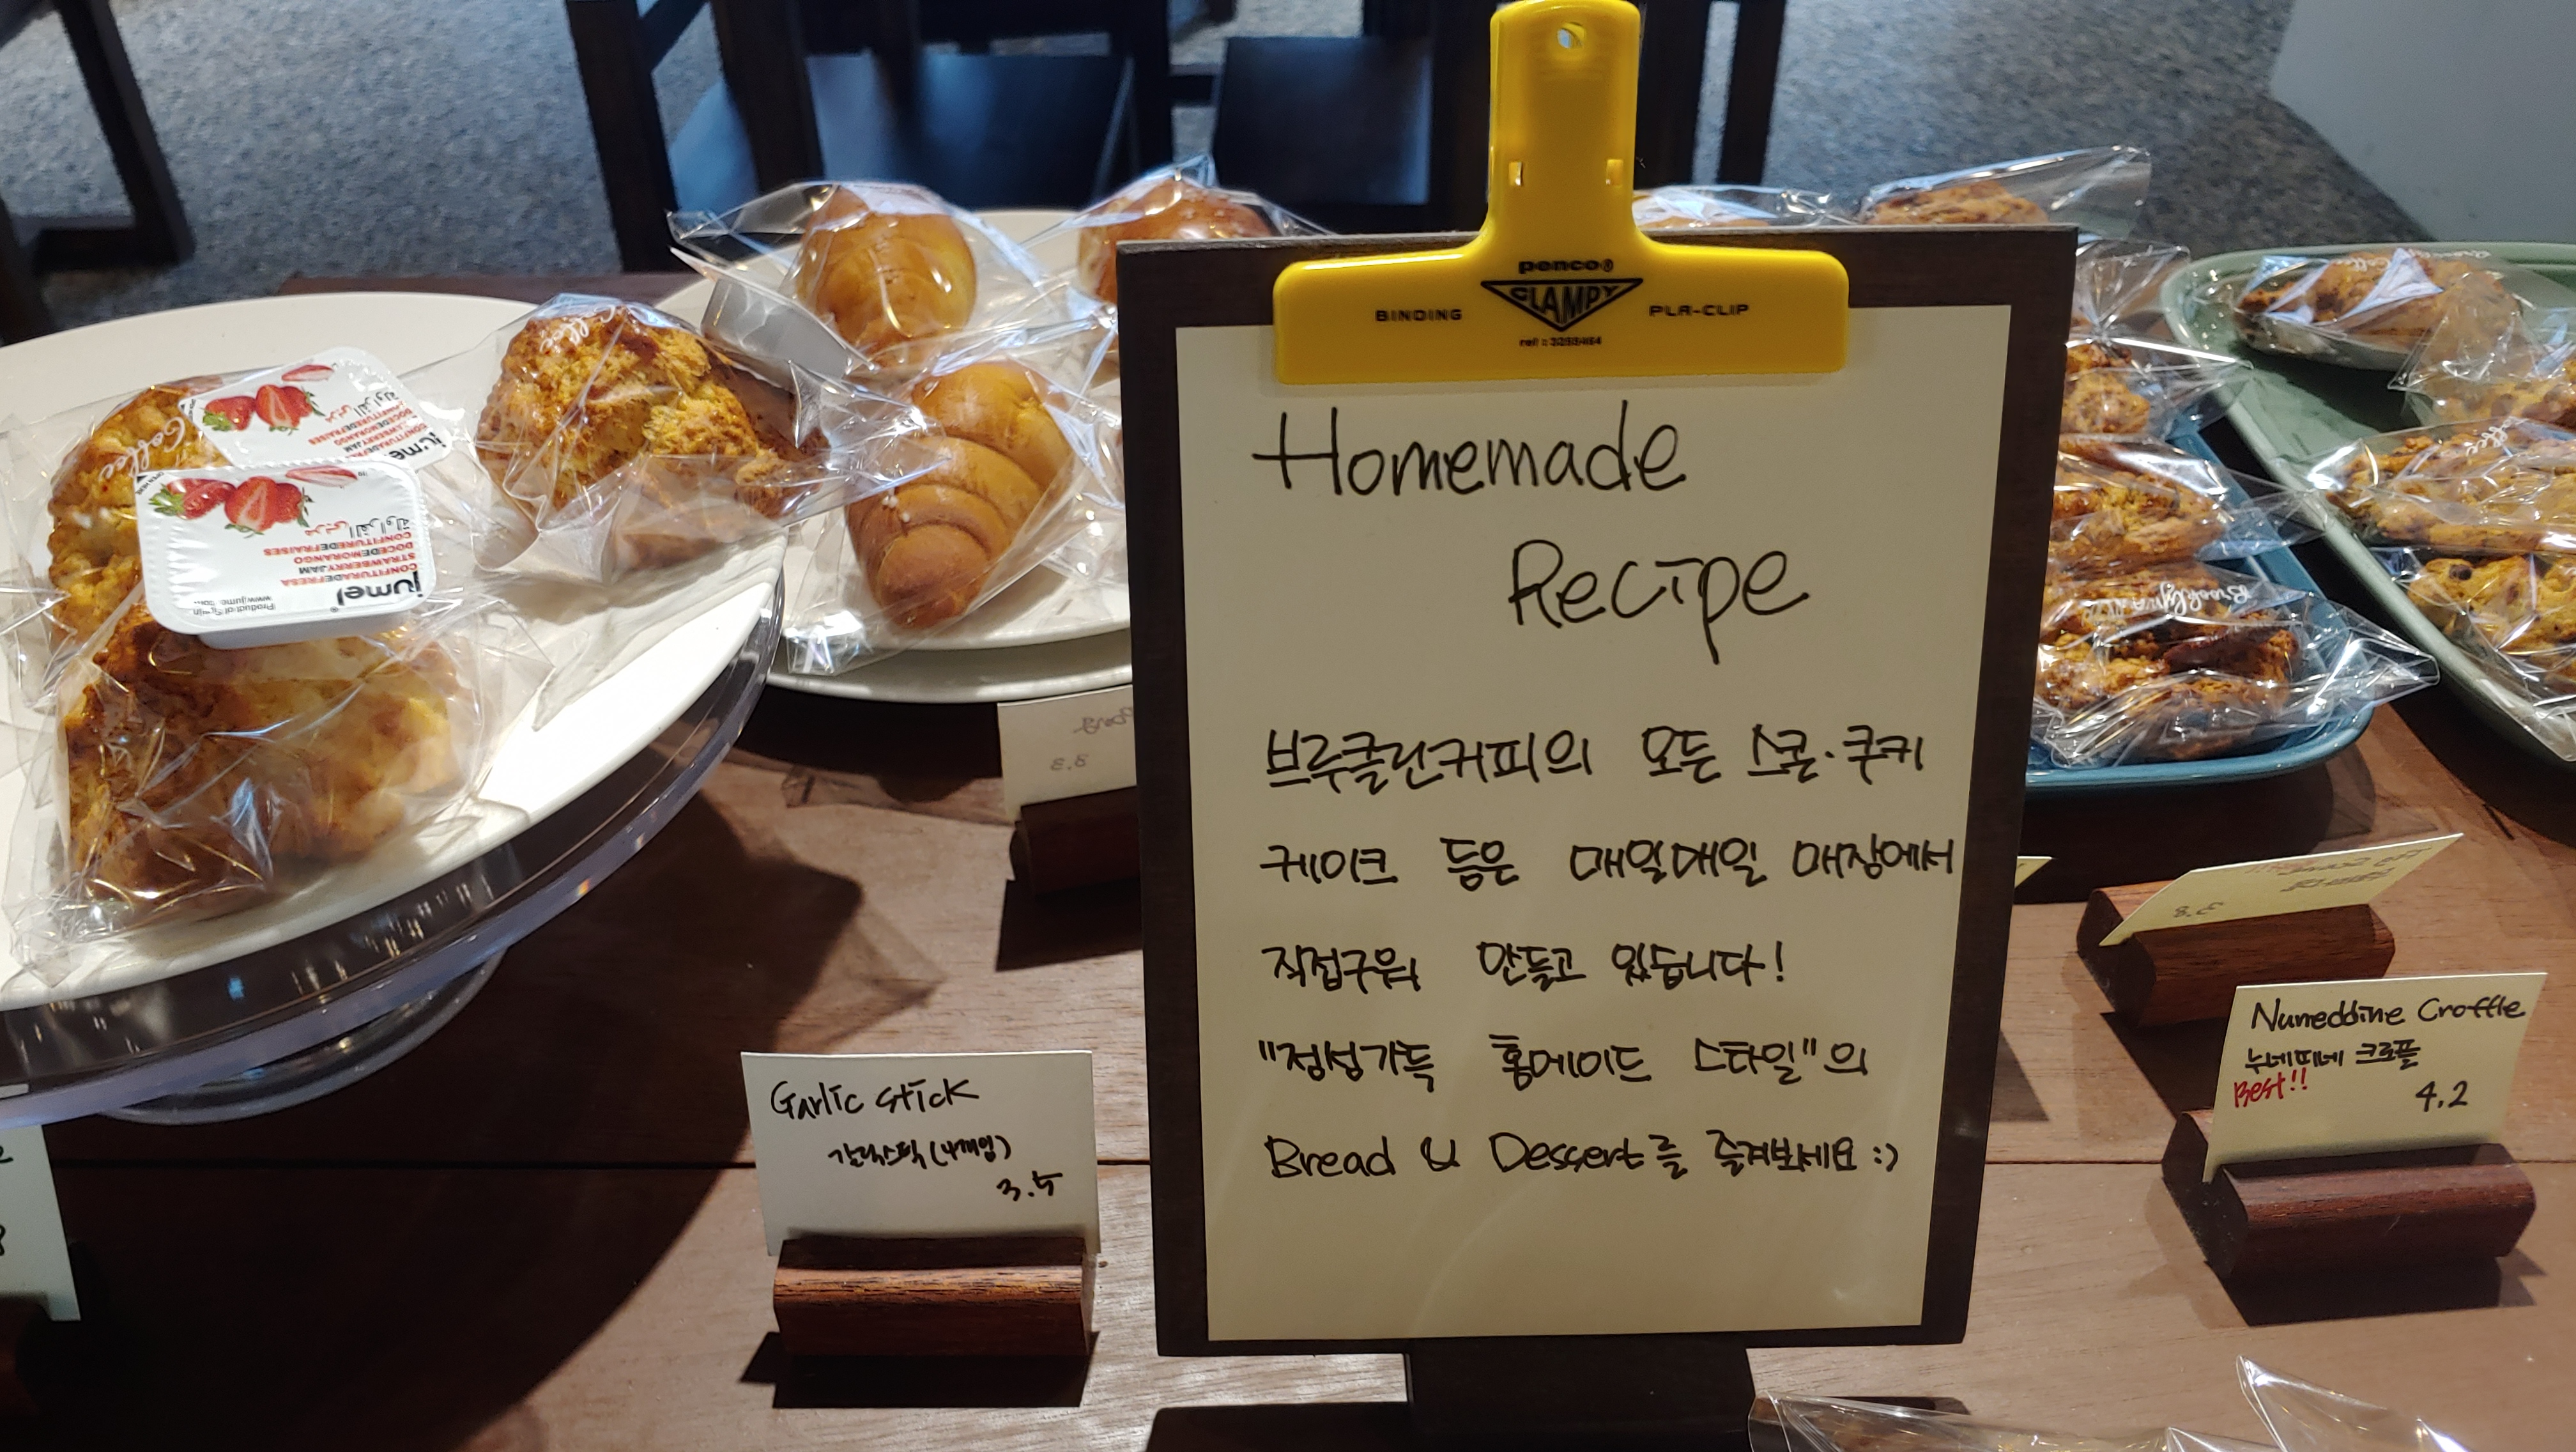 penco®
CLAMPY
BINDING
PLA-CLIP
Homemade
Recipe
브루클린커피의 모든 스콘·쿠키
케이크 등은 매일매일 매장에서
직접구워 만들고 있습니다!
"정성가득 홈메이드 스타일"의
Bread & Dessert를 즐겨보세요 :)
Garlic Stick
갈릭스틱 (4개입)
3.5
Nuneddine Croffle
누네띠네 크로플
Best!!
4.2
jumel
CONFITURADEFRESA
STRAWBERRYJAM
DOCEDEMORANGO
CONFITUREDEFRAISES
Coffee
3.3
3.8